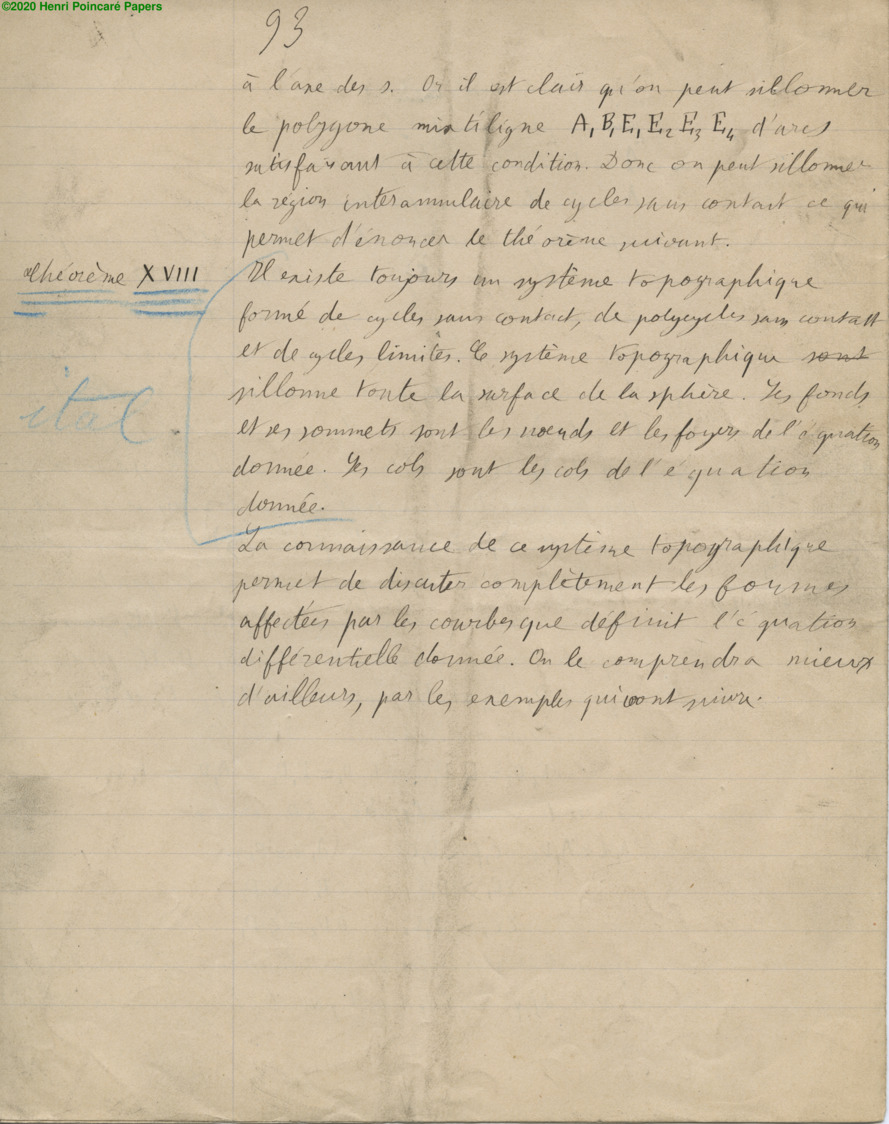 ©2020 Henri Poincaré Papers
93
à l'axe des s. Or il est clair qu'on peut sillonner
le polygone mixtiligne A₁ B₁ E₁ E₂ E₃ E₄ d'arcs
satisfaisant à cette condition. Donc on peut sillonner
la région interannulaire de cycles sans contact ce qui
permet d'énoncer le théorème suivant.
Théorème XVIII
Il existe toujours un système topographique
formé de cycles sans contact, de polycycles sans contact
et de cycles limites. Ce système topographique sont
sillonne toute la surface de la sphère. Ses fonds
et ses sommets sont les nœuds et les foyers de l'équation
donnée. Ses cols sont les cols de l'équation
donnée.
ital
La connaissance de ce système topographique
permet de discuter complètement les formes
affectées par les courbes que définit l'équation
différentielle donnée. On le comprendra mieux
d'ailleurs, par les exemples qui vont suivre.